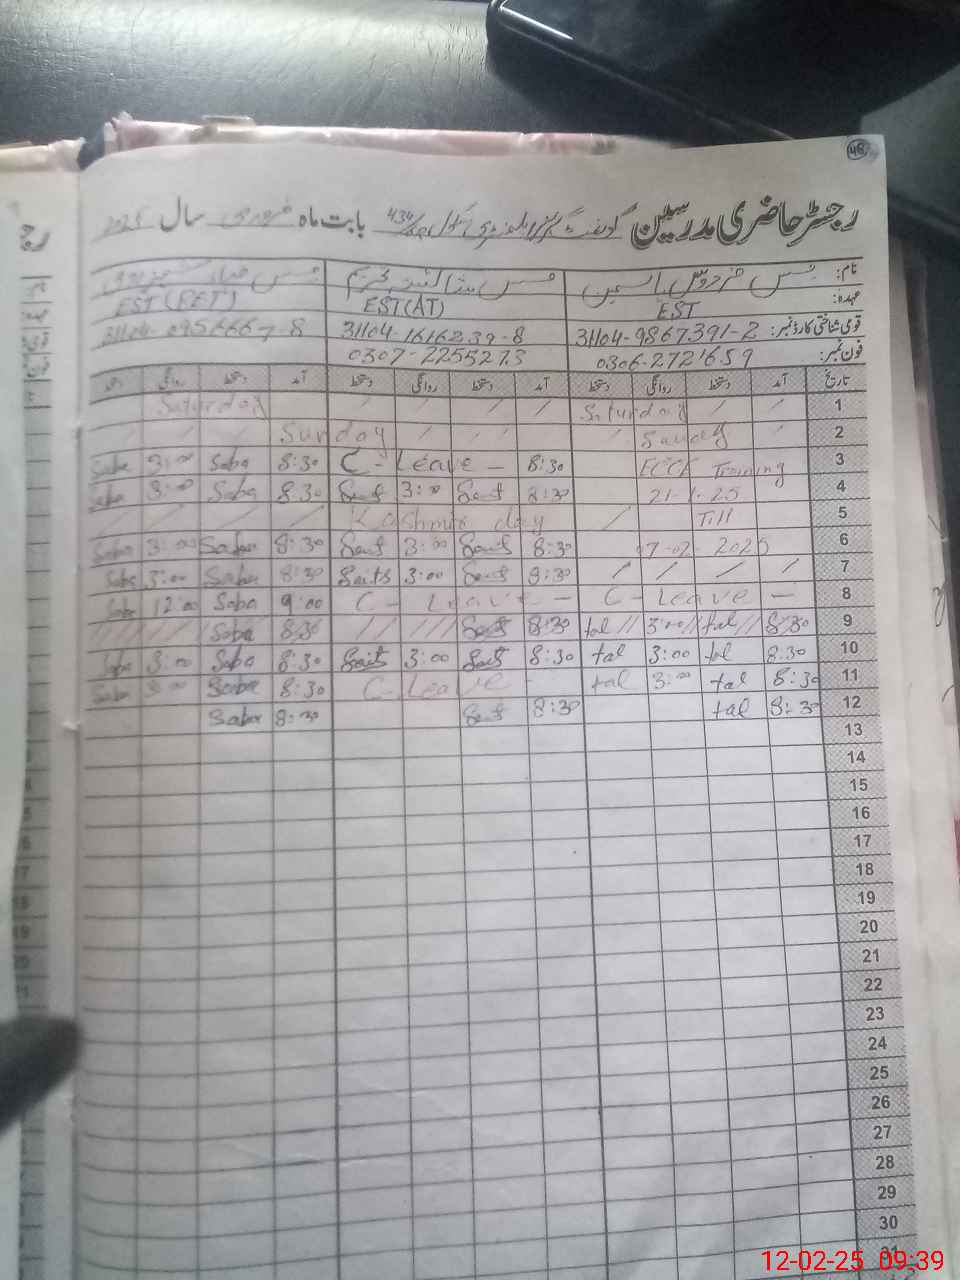 48
رجسٹر حاضری مدرسین گورنمنٹ گرلز ایلیمنٹری سکول 434/ بابت ماہ فروری سال 2025
نام: مس فردوس یاسمین مس شائستہ تحریم مس صباء
عہدہ: EST EST(AT) EST(
قومی شناختی کارڈ نمبر: 31104-9867391-2 31104-1616239-8 31104-095666-8
فون نمبر: 0306-2721659 0307-2255273
تاریخ آمد دستخط روانگی دستخط آمد دستخط روانگی دستخط آمد دستخط روانگی دستخط
1 Saturday / / Saturday / / / /
2 Sunday / / Sunday / / /
3 ECCE Training 8:30 C-Leave - 8:30 Saba 3:00 Saba
4 21-1-25 8:30 3:00 8:30 Saba 3:00 Saba
5 Till / Kashmir day / / / /
6 07-02-2025 8:30 3:00 8:30 Saba 3:00 Saba
7 / / / / 8:30 3:00 8:30 Saba 3:00 Saba
8 C-Leave - C-Leave - 9:00 Saba 12:00 Saba
9 8:30 tal // 3:00 // tal // 8:30 // /// 8:30 Saba /////
10 8:30 tal 3:00 tal 8:30 3:00 8:30 Saba 3:00 Saba
11 8:30 tal 3:00 tal C-Leave 8:30 Saba 3:00 Saba
12 8:30 tal 8:30 8:30 Saba
13
14
15
16
17
18
19
20
21
22
23
24
25
26
27
28
29
30
31
12-02-25 09:39